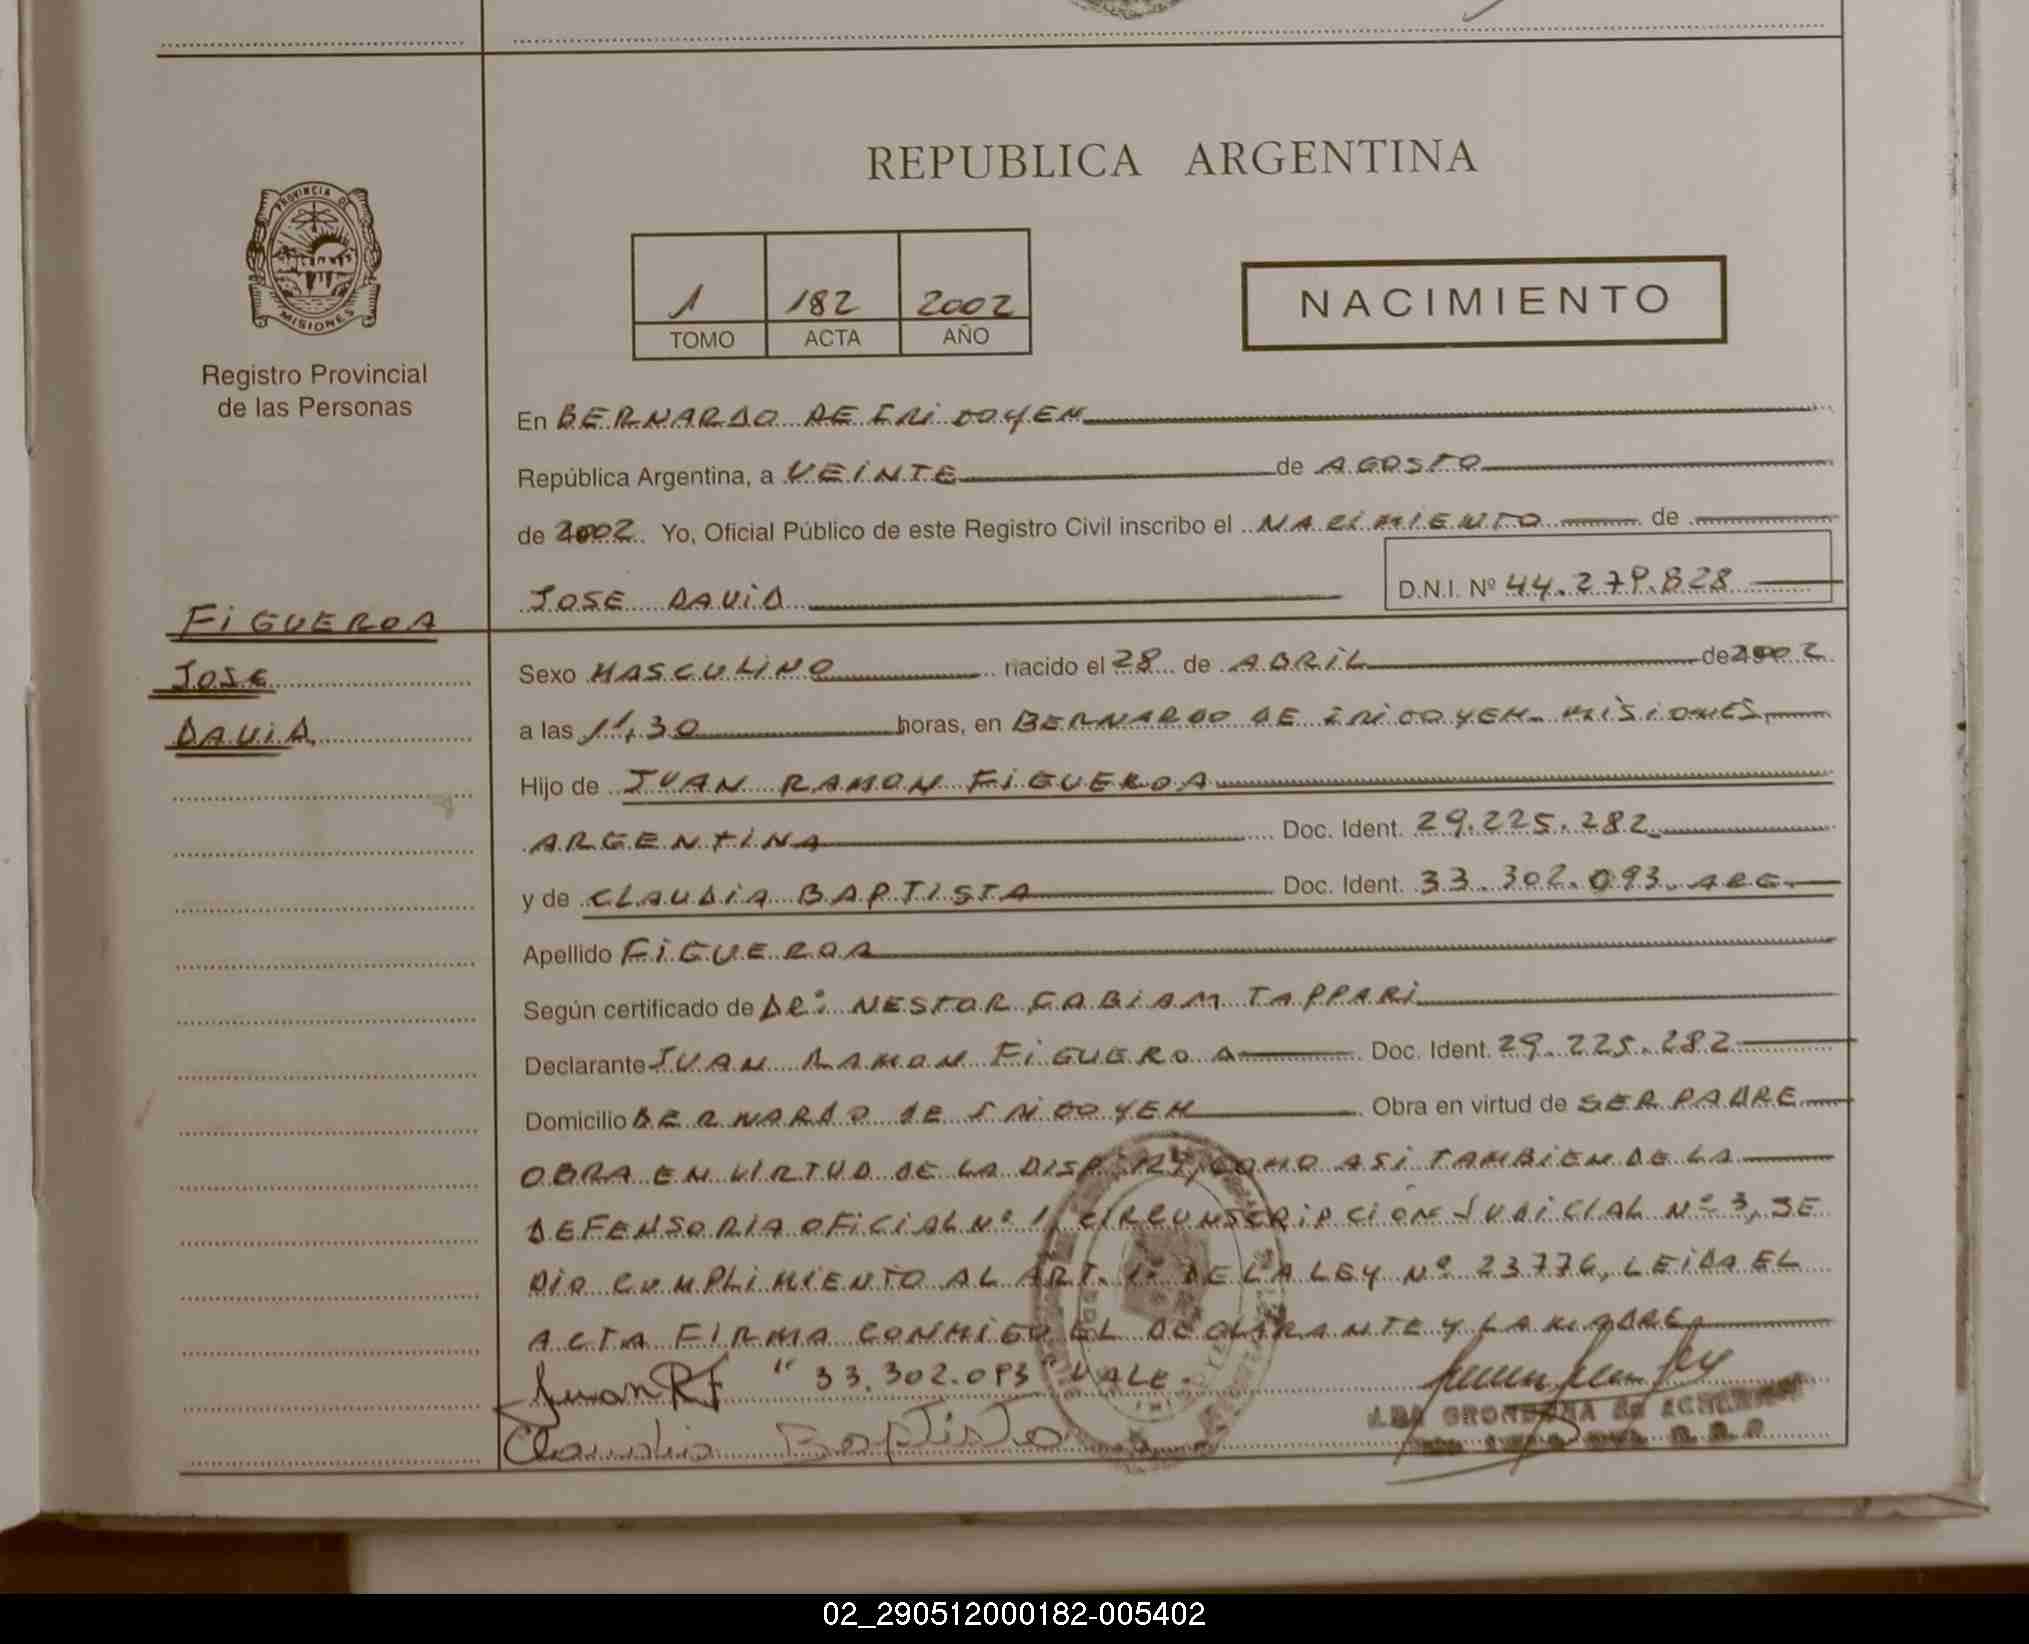 REPUBLICA ARGENTINA
PROVINCIA DE
MISIONES
Registro Provincial
de las Personas
1 182 2002
TOMO ACTA AÑO
NACIMIENTO
En BERNARDO DE IRIGOYEN
República Argentina, a VEINTE de AGOSTO
de 2002 Yo, Oficial Público de este Registro Civil inscribo el NACIMIENTO de
JOSE DAVID D.N.I. Nº 44.279.828
FIGUEROA
JOSE
DAVID
Sexo MASCULINO nacido el 28 de ABRIL de 2002
a las 11,30 horas, en BERNARDO DE IRIGOYEN. MISIONES,
Hijo de JUAN RAMON FIGUEROA
ARGENTINA Doc. Ident. 29.225.282
y de CLAUDIA BAPTISTA Doc. Ident. 33.302.093. ARG.
Apellido FIGUEROA
Según certificado de DR: NESTOR FABIAM TAPPARI
Declarante JUAN RAMON FIGUEROA Doc. Ident. 29.225.282
Domicilio BERNARDO DE IRIGOYEN Obra en virtud de SER PADRE
OBRA EN VIRTUD DE LA DISP. COMO ASI TAMBIEN DE LA
DEFENSORIA OFICIAL Nº 1, CIRCUNSCRIPCION JUDICIAL Nº 3, SE
DIO CUMPLIMIENTO AL ART. 1º DE LA LEY Nº 23776, LEIDA EL
ACTA FIRMA CONMIGO EL DECLARANTE Y LA MADRE.
Juan RF "33.302.093" VALE.
Claudia Baptista
02_290512000182-005402